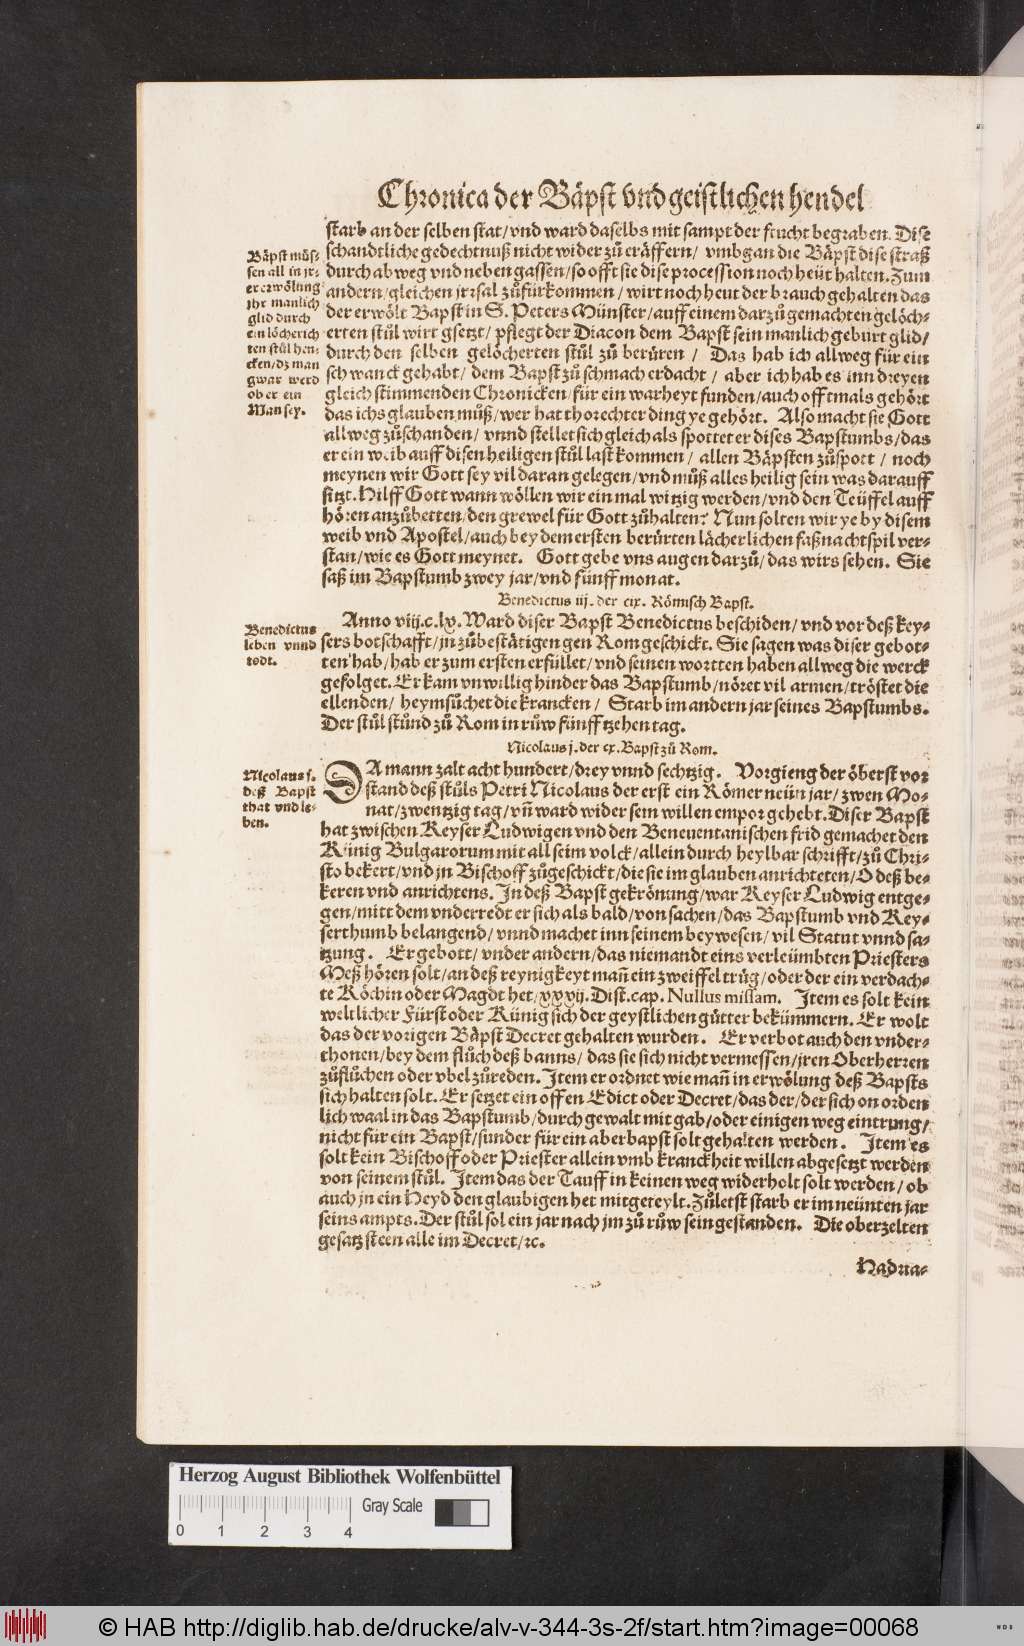 Chronica der Bäpst vnd geistlichen hendel
starb an der selben stat/vnd ward daselbs mit sampt der frucht begraben. Dise
schandtliche gedechtnuß nicht wider zů eräffern/ vmbgan die Bäpst dise straß
durch abweg vnd neben gassen/so offt sie dise procession noch heüt halten. Zum
andern/gleichen jrrsal zůfürkommen/wirt noch heut der brauch gehalten das
der erwölt Bapst in S. Peters Münster/auff einem darzů gemachten gelöch-
erten stůl wirt gsetzt/ pflegt der Diacon dem Bapst sein manlich geburt glid/
durch den selben gelöcherten stůl zů berüren/ Das hab ich allweg für ein
schwanck gehabt/ dem Bapst zů schmach erdacht/ aber ich hab es inn dreyen
gleich stimmenden Chronicken/für ein warheyt funden/auch offtmals gehört
das ichs glauben můß/wer hat thorechter ding ye gehört. Also macht sie Gott
allweg zůschanden/ vnnd stellet sich gleich als spottet er dises Bapstumbs/das
er ein weib auff disen heiligen stůl last kommen/ allen Bäpsten zůspott/ noch
meynen wir Gott sey vil daran gelegen/vnd můß alles heilig sein was darauff
sitzt. Hilff Gott wann wöllen wir ein mal witzig werden/vnd den Teüffel auff
hören anzůbetten/den grewel für Gott zůhalten? Nun solten wir ye by disem
weib vnd Apostel/auch bey dem ersten berürten lächerlichen faßnachtspil ver-
stan/wie es Gott meynet. Gott gebe vns augen darzů/das wirs sehen. Sie
saß im Bapstumb zwey jar/vnd fünff monat.
Bäpst müs-
sen all in jr-
er erwölung
jhr manlich
glid durch
ein löcherich
ten stůl hen-
cken/dz man
gwar werd
ob er ein
Man sey.
Benedictus iij. der cix. Römisch Bapst.
Anno viij.c.lv. Ward diser Bapst Benedictus beschiden/ vnd vor deß key-
sers botschafft/jn zůbestätigen gen Rom geschickt. Sie sagen was diser gebot-
ten hab/hab er zum ersten erfüllet/vnd seinen wortten haben allweg die werck
gefolget. Er kam vnwillig hinder das Bapstumb/nöret vil armen/tröstet die
ellenden/ heymsůchet die krancken/ Starb im andern jar seines Bapstumbs.
Der stůl stůnd zů Rom in růw fünfftzehen tag.
Benedictus
leben vnnd
todt.
Nicolaus j. der cx. Bapst zů Rom.
DA mann zalt acht hundert/drey vnnd sechtzig. Vorgieng der öberst vor
stand deß stůls Petri Nicolaus der erst ein Römer neün jar/zwen Mo-
nat/zwentzig tag/vñ ward wider sein willen empor gehebt. Diser Bapst
hat zwischen Keyser Ludwigen vnd den Beneuentanischen frid gemachet den
Künig Bulgarorum mit all seim volck/allein durch heylbar schrifft/zů Chri-
sto bekert/vnd jn Bischoff zůgeschickt/die sie im glauben anrichteten/O deß be-
keren vnd anrichtens. In deß Bapst gekrönung/war Keyser Ludwig entge-
gen/mitt dem vnderredt er sich als bald/von sachen/das Bapstumb vnd Key-
serthumb belangend/ vnnd machet inn seinem beywesen/ vil Statut vnnd sa-
tzung. Er gebott/ vnder andern/das niemandt eins verleümbten Priesters
Meß hören solt/an deß reynigkeyt mañ ein zweiffel trůg/oder der ein verdach-
te Köchin oder Magdt het/xxxij. Dist. cap. Nullus missam. Item es solt kein
weltlicher Fürst oder Künig sich der geystlichen gütter bekümmern. Er wolt
das der vorigen Bäpst Decret gehalten wurden. Er verbot auch den vnder-
thonen/bey dem flůch deß banns/ das sie sich nicht vermessen/jren Oberherren
zůflůchen oder vbel zůreden. Item er ordnet wie mañ in erwölung deß Bapsts
sich halten solt. Er setzet ein offen Edict oder Decret/das der/der sich on orden
lich waal in das Bapstumb/durch gewalt mit gab/oder einigen weg eintrung/
nicht für ein Bapst/sunder für ein aberbapst solt gehalten werden. Item es
solt kein Bischoff oder Priester allein vmb kranckheit willen abgesetzt werden
von seinem stůl. Item das der Tauff in keinen weg widerholt solt werden/ob
auch jn ein Heyd den glaubigen het mitgeteylt. Zůletst starb er im neünten jar
seins ampts. Der stůl sol ein jar nach jm zů růw sein gestanden. Die oberzelten
gesatz steen alle im Decret/rc.
Nicolaus j.
deß Bapst
that vnd le-
ben.
Hadria-
Herzog August Bibliothek Wolfenbüttel
Gray Scale
0 1 2 3 4
© HAB http://diglib.hab.de/drucke/alv-v-344-3s-2f/start.htm?image=00068